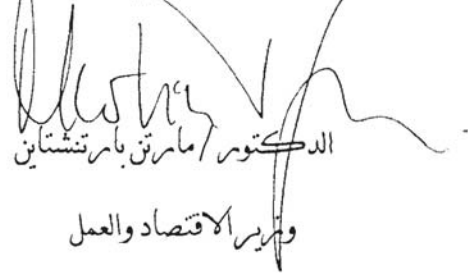 الدكتور/مارتن بارتنشتاين
وزير الاقتصاد والعمل